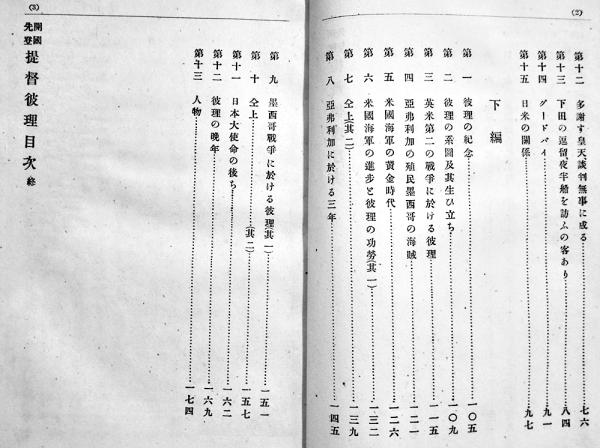 (2)
第十二 多謝す皇天、談判無事に成る……七六
第十三 下田の逗留、夜半船を訪ふの客あり……八四
第十四 グードバイ……九一
第十五 日米の關係……九七
下編
第一 彼理の紀念……一〇五
第二 彼理の系圖及其生ひ立ち……一〇九
第三 英米第二の戰爭に於ける彼理……一一五
第四 亞弗利加の殖民墨西哥の海賊……一二六
第五 米國海軍の黄金時代……一二六
第六 米國海軍の進步と彼理の功勞(其一)……一三二
第七 仝上(其二)……一三九
第八 亞弗利加に於ける三年……一四五
(3)
第九 墨西哥戰爭に於ける彼理(其一)……一五一
第十 仝上(其二)……一五七
第十一 日本大使命の後ち……一六二
第十二 彼理の晩年……一六九
第十三 人物……一七四
開國先登 提督彼理目次 終